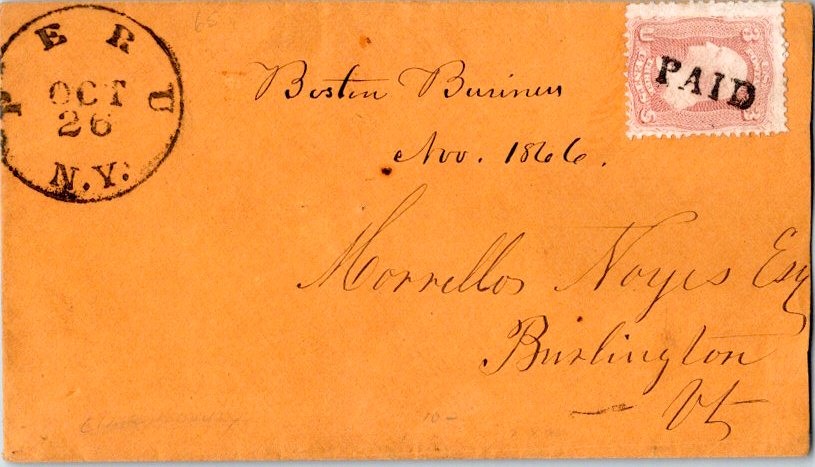 PERU
OCT
26
N.Y.
65
Boston Business
Nov. 1866.
PAID
Morrellos Noyes Esq
Burlington
Vt
10 -